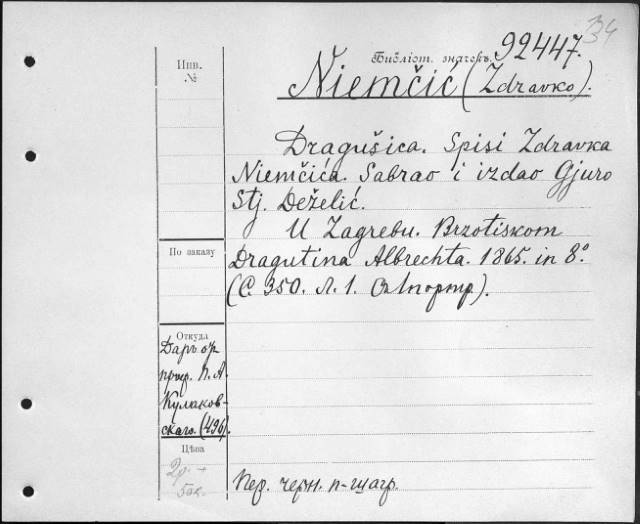 34
Инв.
№
Библіот. значекъ. 92447.
Niemčić (Zdravko).
Dragušica. Spisi Zdravka
Niemčića. Sabrao i izdao Gjuro
Stj. Deželić.
U Zagrebu. Brzotiskom
Dragutina Albrechta. 1865. in 8.º
(С. 350. Л. 1. Съ портр).
По заказу
Откуда
Даръ отъ
проф. П. А.
Кулаков-
скаго. (496).
Цѣна
2р. +
50к.
Пер. черн. п-шагр.